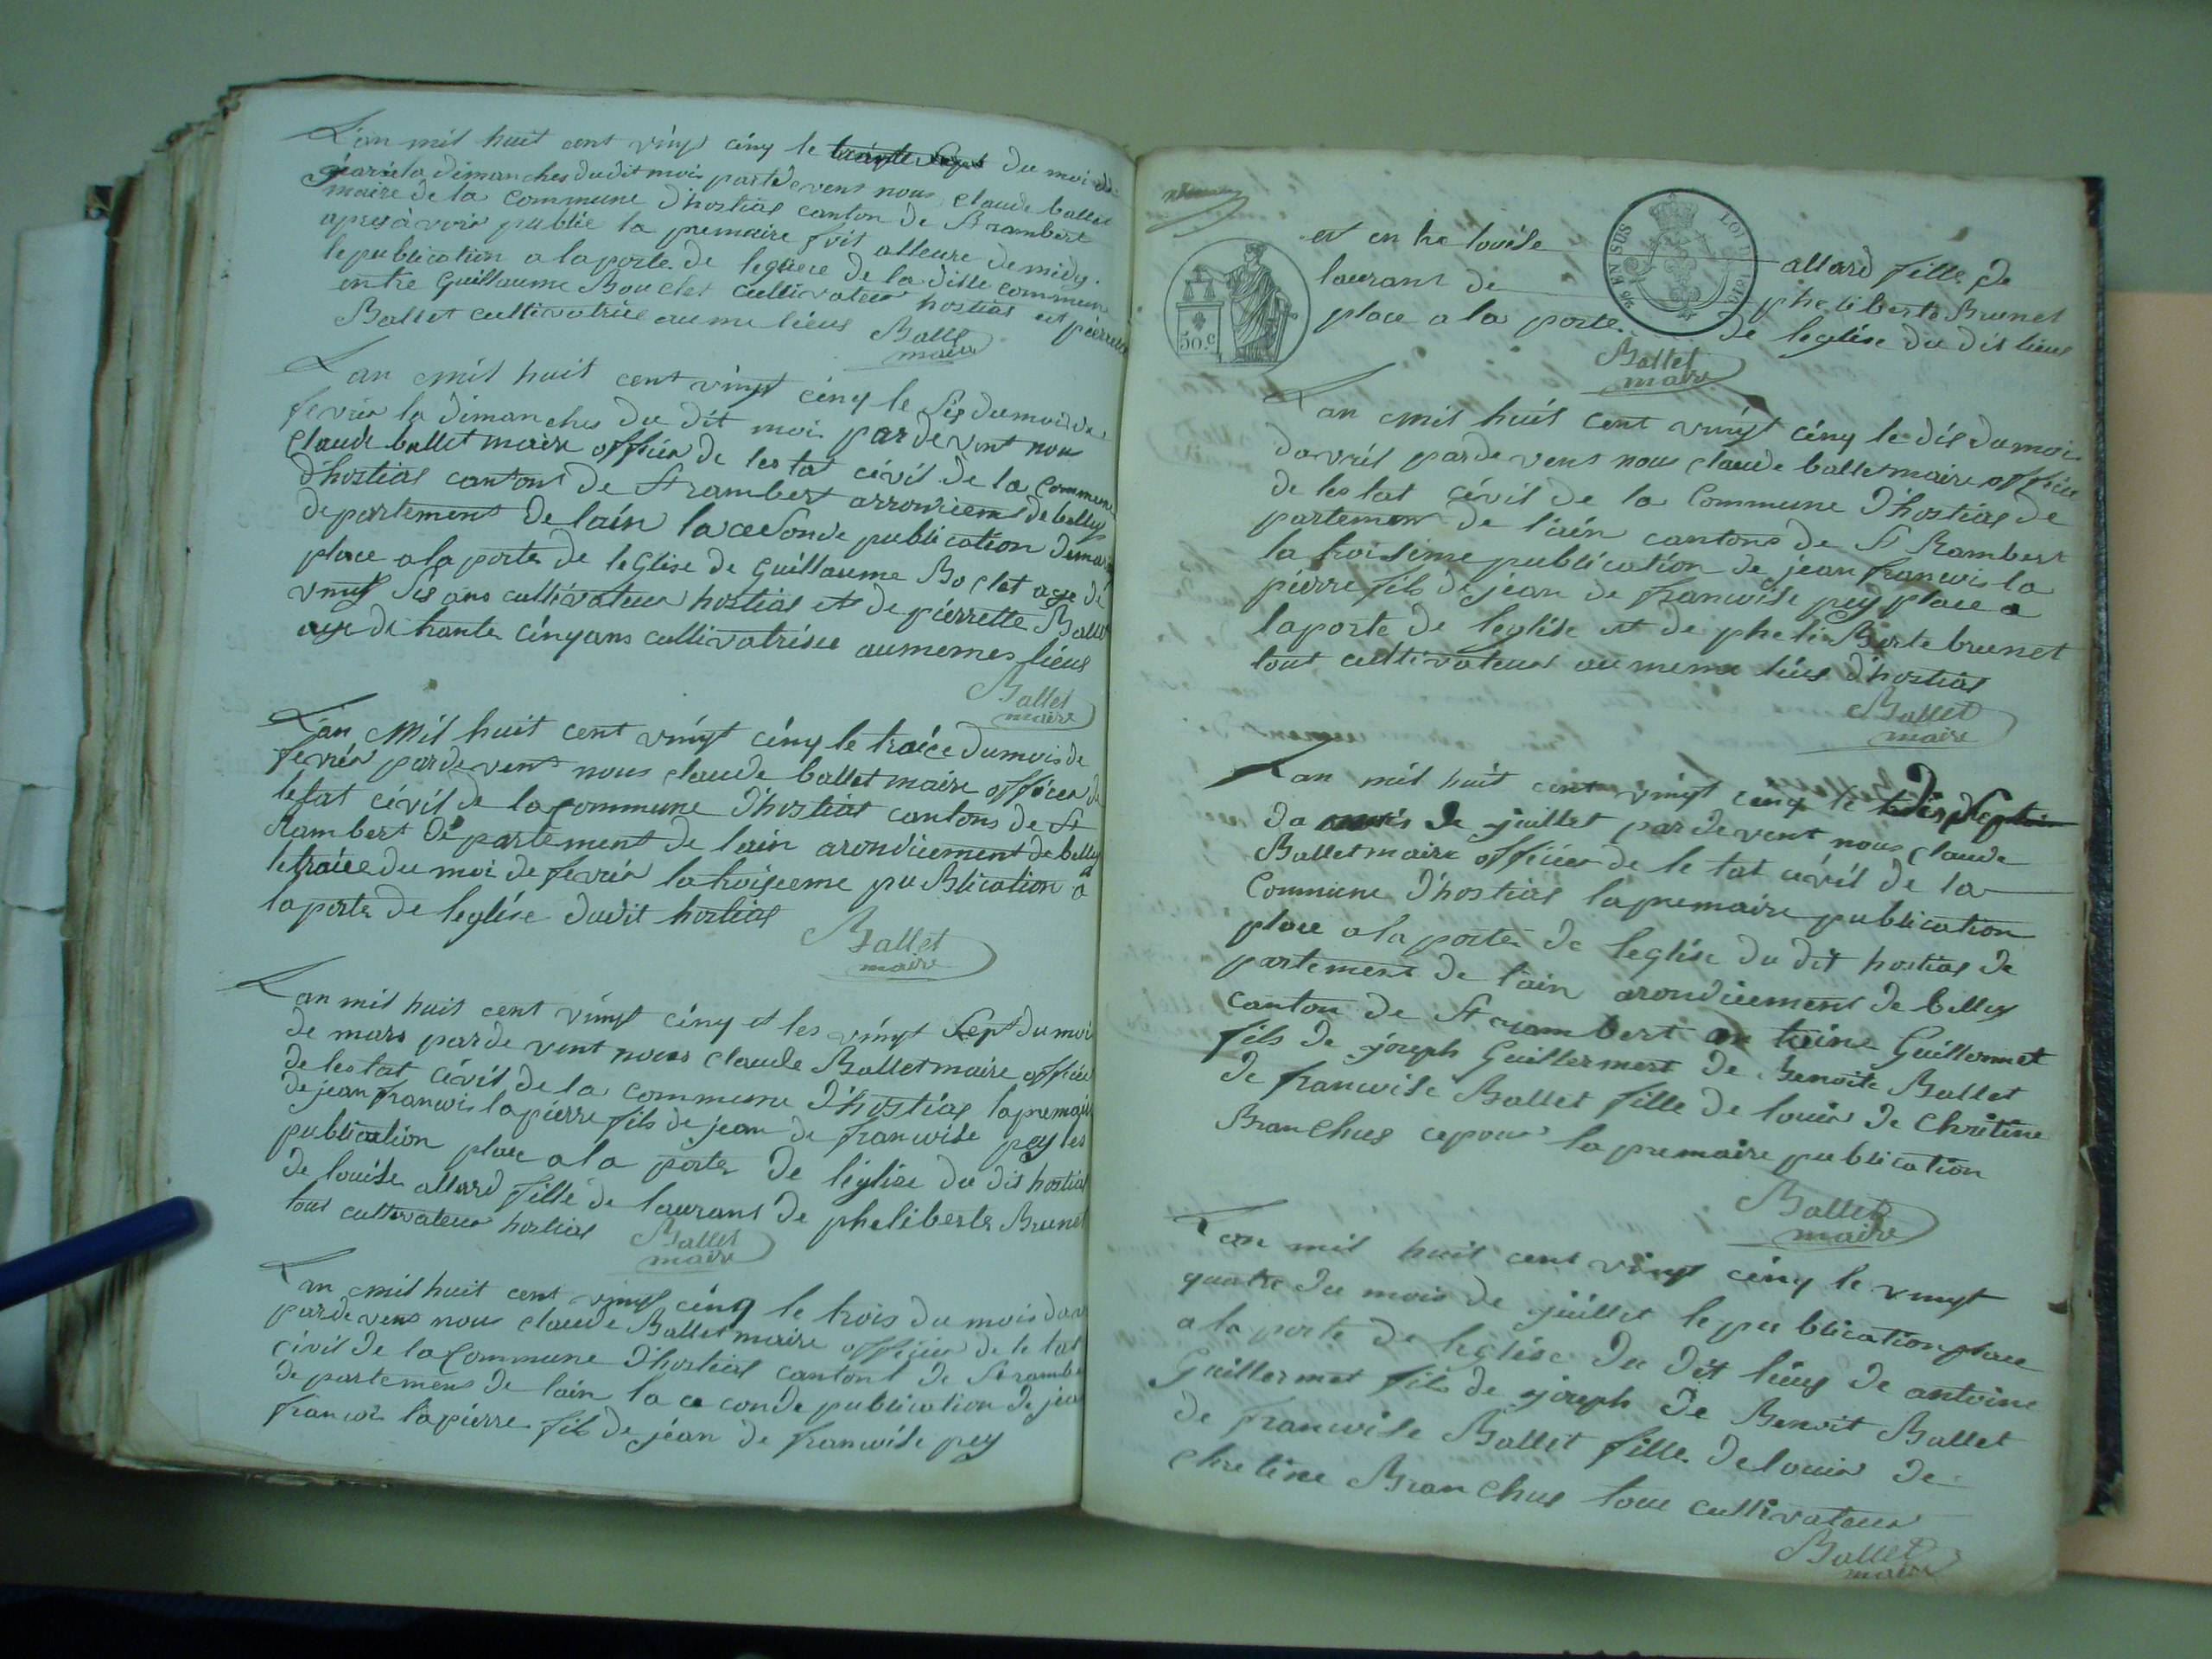 L'an mil huit cent vingt cinq le du moi de
janvié la dimanches dudit mois pardevent nous Claude ballet
maire de la Commune d'hostias canton de St rambert
apres à voir publié la premaire foit alleure de midy
le publication a la porte de leglise de la ditte commune
entre Guillaume Bouclet cultivateur hostias et pierrette
Ballet cultivatrice au me lieus
Ballet
maire
L'an mil huit cent vingt cinq le six du moi de
fevrier la dimanches du dit moi par devent nous
Claude ballet maire officier de les tat civil de la Commune
d'hostias cantons de St rambert arrondicem de belley
departement de lain la ceconde publication
place a la porte de leglise de Guillaume Boclet age de
vingt six ans cultivateur hostias et de pierrette Ballet
age de trante cinq ans cultivatrisce au memes lieus
Ballet
maire
L'an mil huit cent vingt cinq le traice du mois de
fevrier pardevent nous Claude ballet maire officier de
letat civil de la Commune d'hostias cantons de St
Rambert departement de lain arondicement de belley
le traice du moi de fevrier la troiseeme publication a
la porte de leglise dudit hostias
Ballet
maire
L'an mil huit cent vingt cinq et les vingt sept du moi
de mars par de vent nous Claude Ballet maire officier
de les tat civil de la commune d'hostias la premaire
de jean francois lapierre fils de jean de francoise pey les
publication place a la porte de leglise du dit hostias
de louise allard fille de laurant de pheliberte Brunet
tous cultivateur hostias
Ballet
maire
L'an mil huit cent vingt cinq le trois du mois dav
pardevent nous Claude Ballet maire officier de le tat
civil de la Commune d'hostias cantont de St rambe
de partement de lain la ce conde publication de jean
francois lapierre fils de jean de francoise pey
et en tre louise allard fille de
laurant de pheliberte Brunet
place a la porte de leglise du dit lieus
LOI DE 1816
EN SUS
50.C
Ballet
maire
L'an mil huit cent vingt cinq le dis du moi
davril pardevent nous Claude ballet maire officier
de les tat civil de la Commune d'hostias de
partement de l'ain cantons de St Rambert
la troisime publication de jean francois la
pierre fils de jean de francoise pey place a
la porte de leglise et de pheliBerte brunet
tout cultivateur au meme lieu d'hostias
Ballet
maire
L'an mil huit cent vingt cinq le dix sept
du mois de juillet par devent nous Claude
Ballet maire officier de le tat civil de la
Commune d'hostias la premaire publication
place a la porte de leglise du dit hostias de
partement de lain arondicement de belley
canton de St rambert an toine Guillermet
fils de joseph Guillermert de Benoite Ballet
de francoise Ballet fille de louis de Chretine
BranChus ce pour la premaire publication
Ballet
maire
L'an mil huit cent vingt cinq le vingt
quatre du mois de juillet le publication place
a la porte de leglise du dit lieus de antoine
Guillermet fils de joseph de Benoit Ballet
de francoise Ballet fille de louis de
chretine BranChus tous cultivateur
Ballet
maire